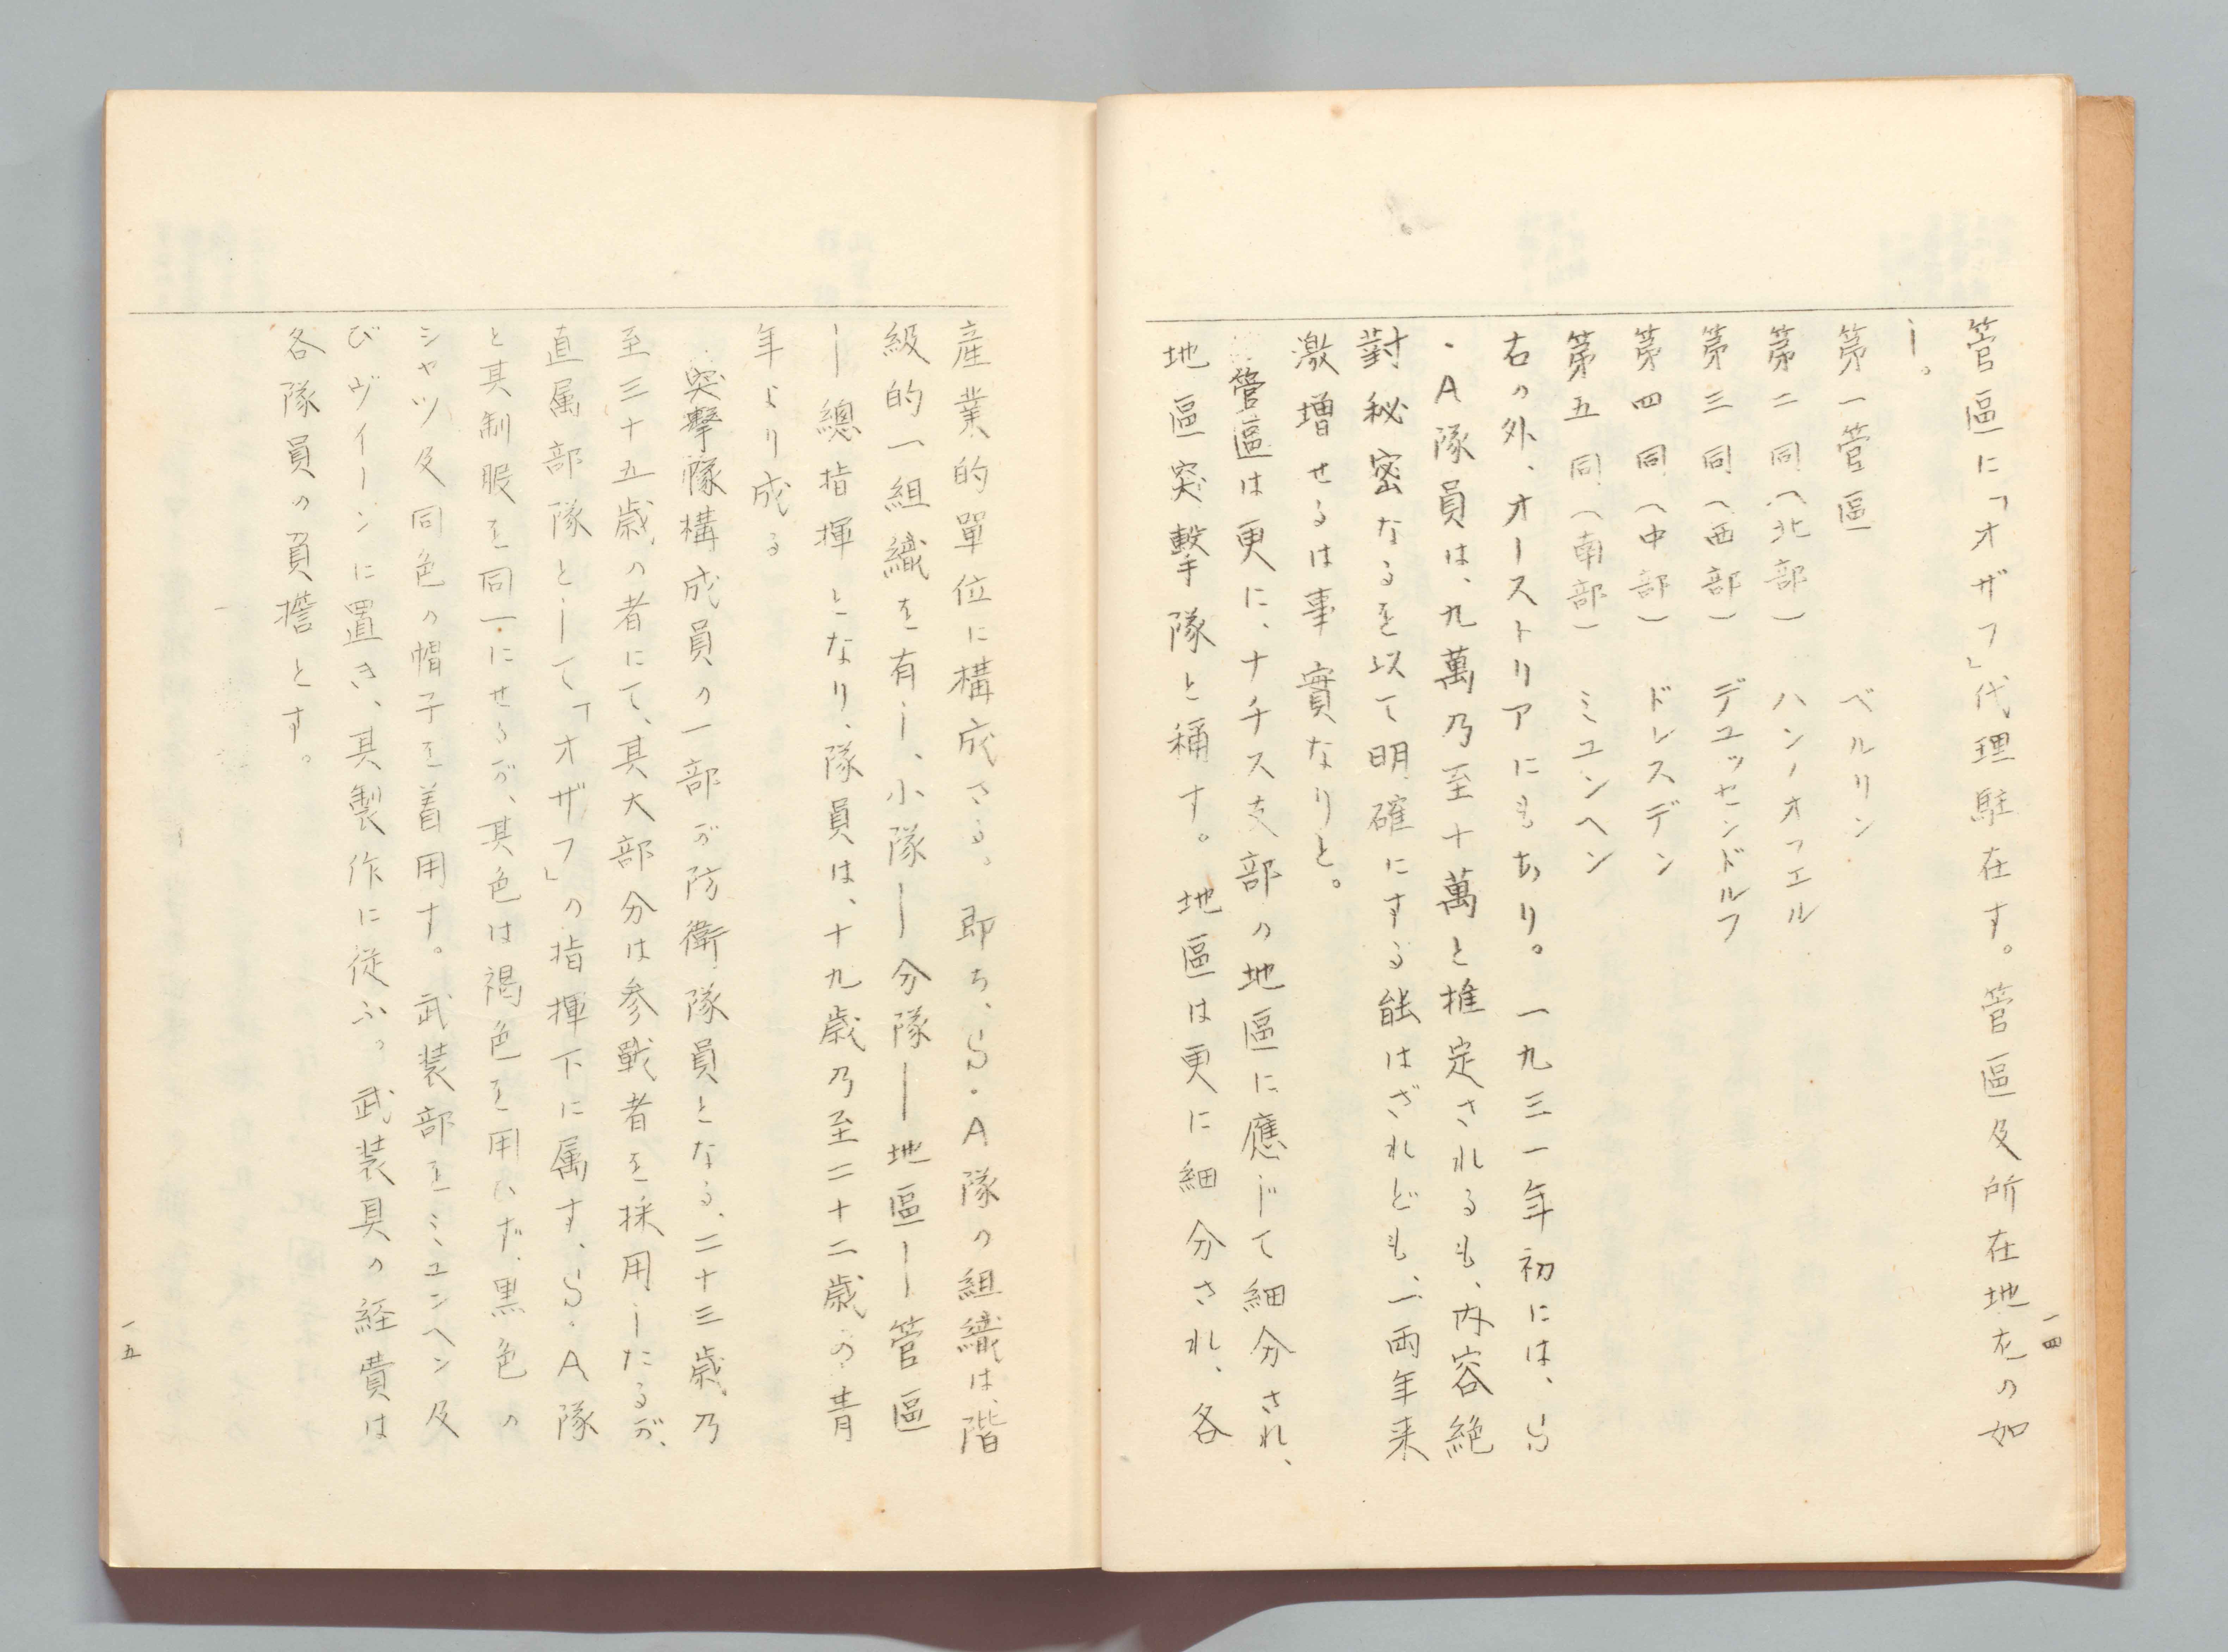 管區に「オザフ」代理駐在す。管區及所在地左の如
し。
第一管區 ベルリン
第二同(北部) ハンノオフエル
第三同(西部) デユッセンドルフ
第四同(中部) ドレスデン
第五同(南部) ミユンヘン
右の外、オーストリアにもあり。一九三一年初には、S
・A隊員は、九萬乃至十萬と推定されるも、内容絶
對秘密なるを以て明確にする能はざれども、一両年来
激増せるは事實なりと。
管區は更に、ナチス支部の地區に應じて細分され、
地區突撃隊と稱す。地區は更に細分され、各
一四
産業的單位に構成さる。即ち、S・A隊の組織は、階
級的一組織を有し、小隊ー分隊ー地區ー管區
ー總指揮となり、隊員は、十九歳乃至二十二歳の青
年より成る
突撃隊構成員の一部が防衛隊員となる、二十三歳乃
至三十五歳の者にて、其大部分は参戰者を採用したるが、
直属部隊として「オザフ」の指揮下に属す、S・A隊
と其制服を同一にせるが、其色は褐色を用ひず、黒色の
シャツ及同色の帽子を着用す。武装部をミユンヘン及
びヴイーンに置き、其製作に従ふ。武装具の経費は
各隊員の負擔とす。
一五